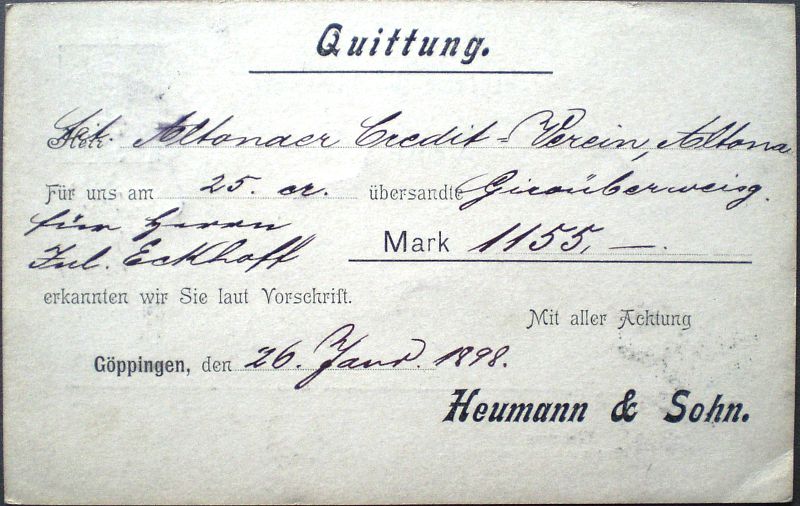 Quittung.
Tit. Altonaer Credit-Verein, Altona
Für uns am 25. cr. übersandte Giroüberweisg.
für Herrn
Jul. Eckhoff Mark 1155,—.
erkannten wir Sie laut Vorschrift.
Mit aller Achtung
Göppingen, den 26. Januar 1898.
Heumann & Sohn.